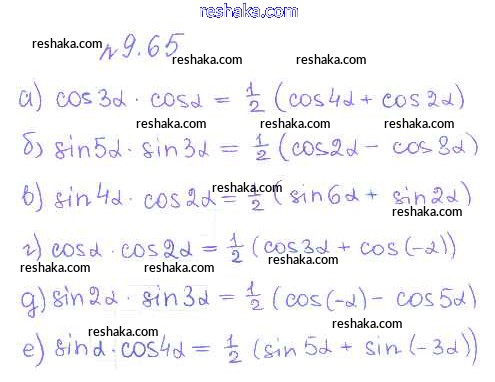 reshaka.com
reshaka.com №9.65
reshaka.com reshaka.com
а) cos3α · cosα = 1/2 (cos4α + cos2α)
reshaka.com reshaka.com
б) sin5α · sin3α = 1/2 (cos2α - cos3α)
reshaka.com
в) sin4α · cos2α = 1/2 (sin6α + sin2α)
reshaka.com reshaka.com
г) cosα · cos2α = 1/2 (cos3α + cos(-α))
reshaka.com reshaka.com reshaka.com
д) sin2α · sin3α = 1/2 (cos(-α) - cos5α)
reshaka.com reshaka.com
е) sinα · cos4α = 1/2 (sin5α + sin(-3α))
reshaka.com reshaka.com